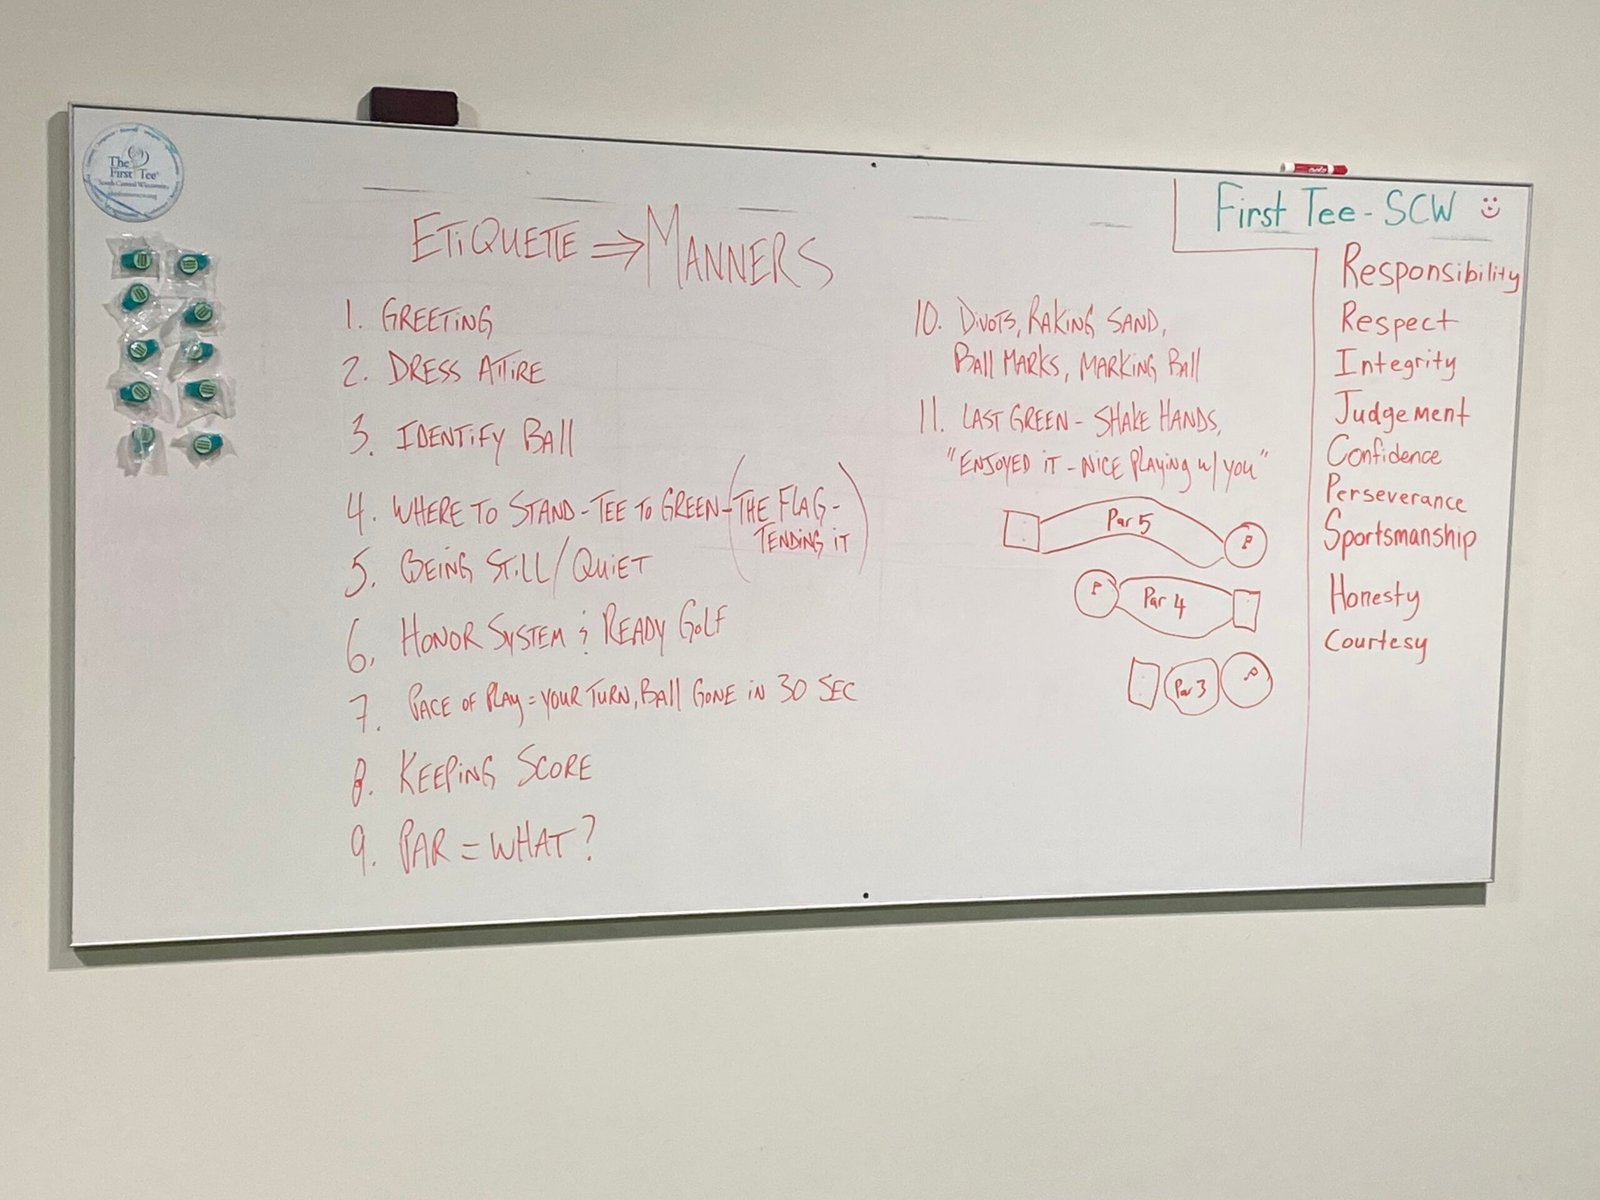 The
First Tee
South Central Wisconsin
ETIQUETTE ⇒ MANNERS
1. GREETING
2. DRESS ATTIRE
3. IDENTIFY BALL
4. WHERE TO STAND - TEE TO GREEN - (THE FLAG -
TENDING IT)
5. BEING STILL / QUIET
6. HONOR SYSTEM & READY GOLF
7. PACE OF PLAY = YOUR TURN, BALL GONE IN 30 SEC
8. KEEPING SCORE
9. PAR = WHAT?
10. DIVOTS, RAKING SAND,
BALL MARKS, MARKING BALL
11. LAST GREEN - SHAKE HANDS,
"ENJOYED IT - NICE PLAYING W/ YOU"
Par 5
Par 4
Par 3
First Tee - SCW
Responsibility
Respect
Integrity
Judgement
Confidence
Perseverance
Sportsmanship
Honesty
Courtesy